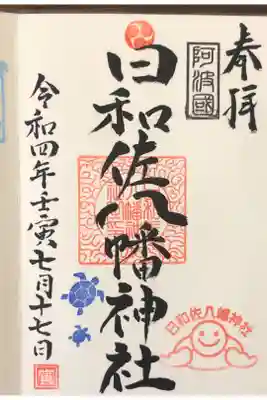 奉拝
阿波國
日和佐八幡神社
日和佐八幡神社
令和四年壬寅七月十七日